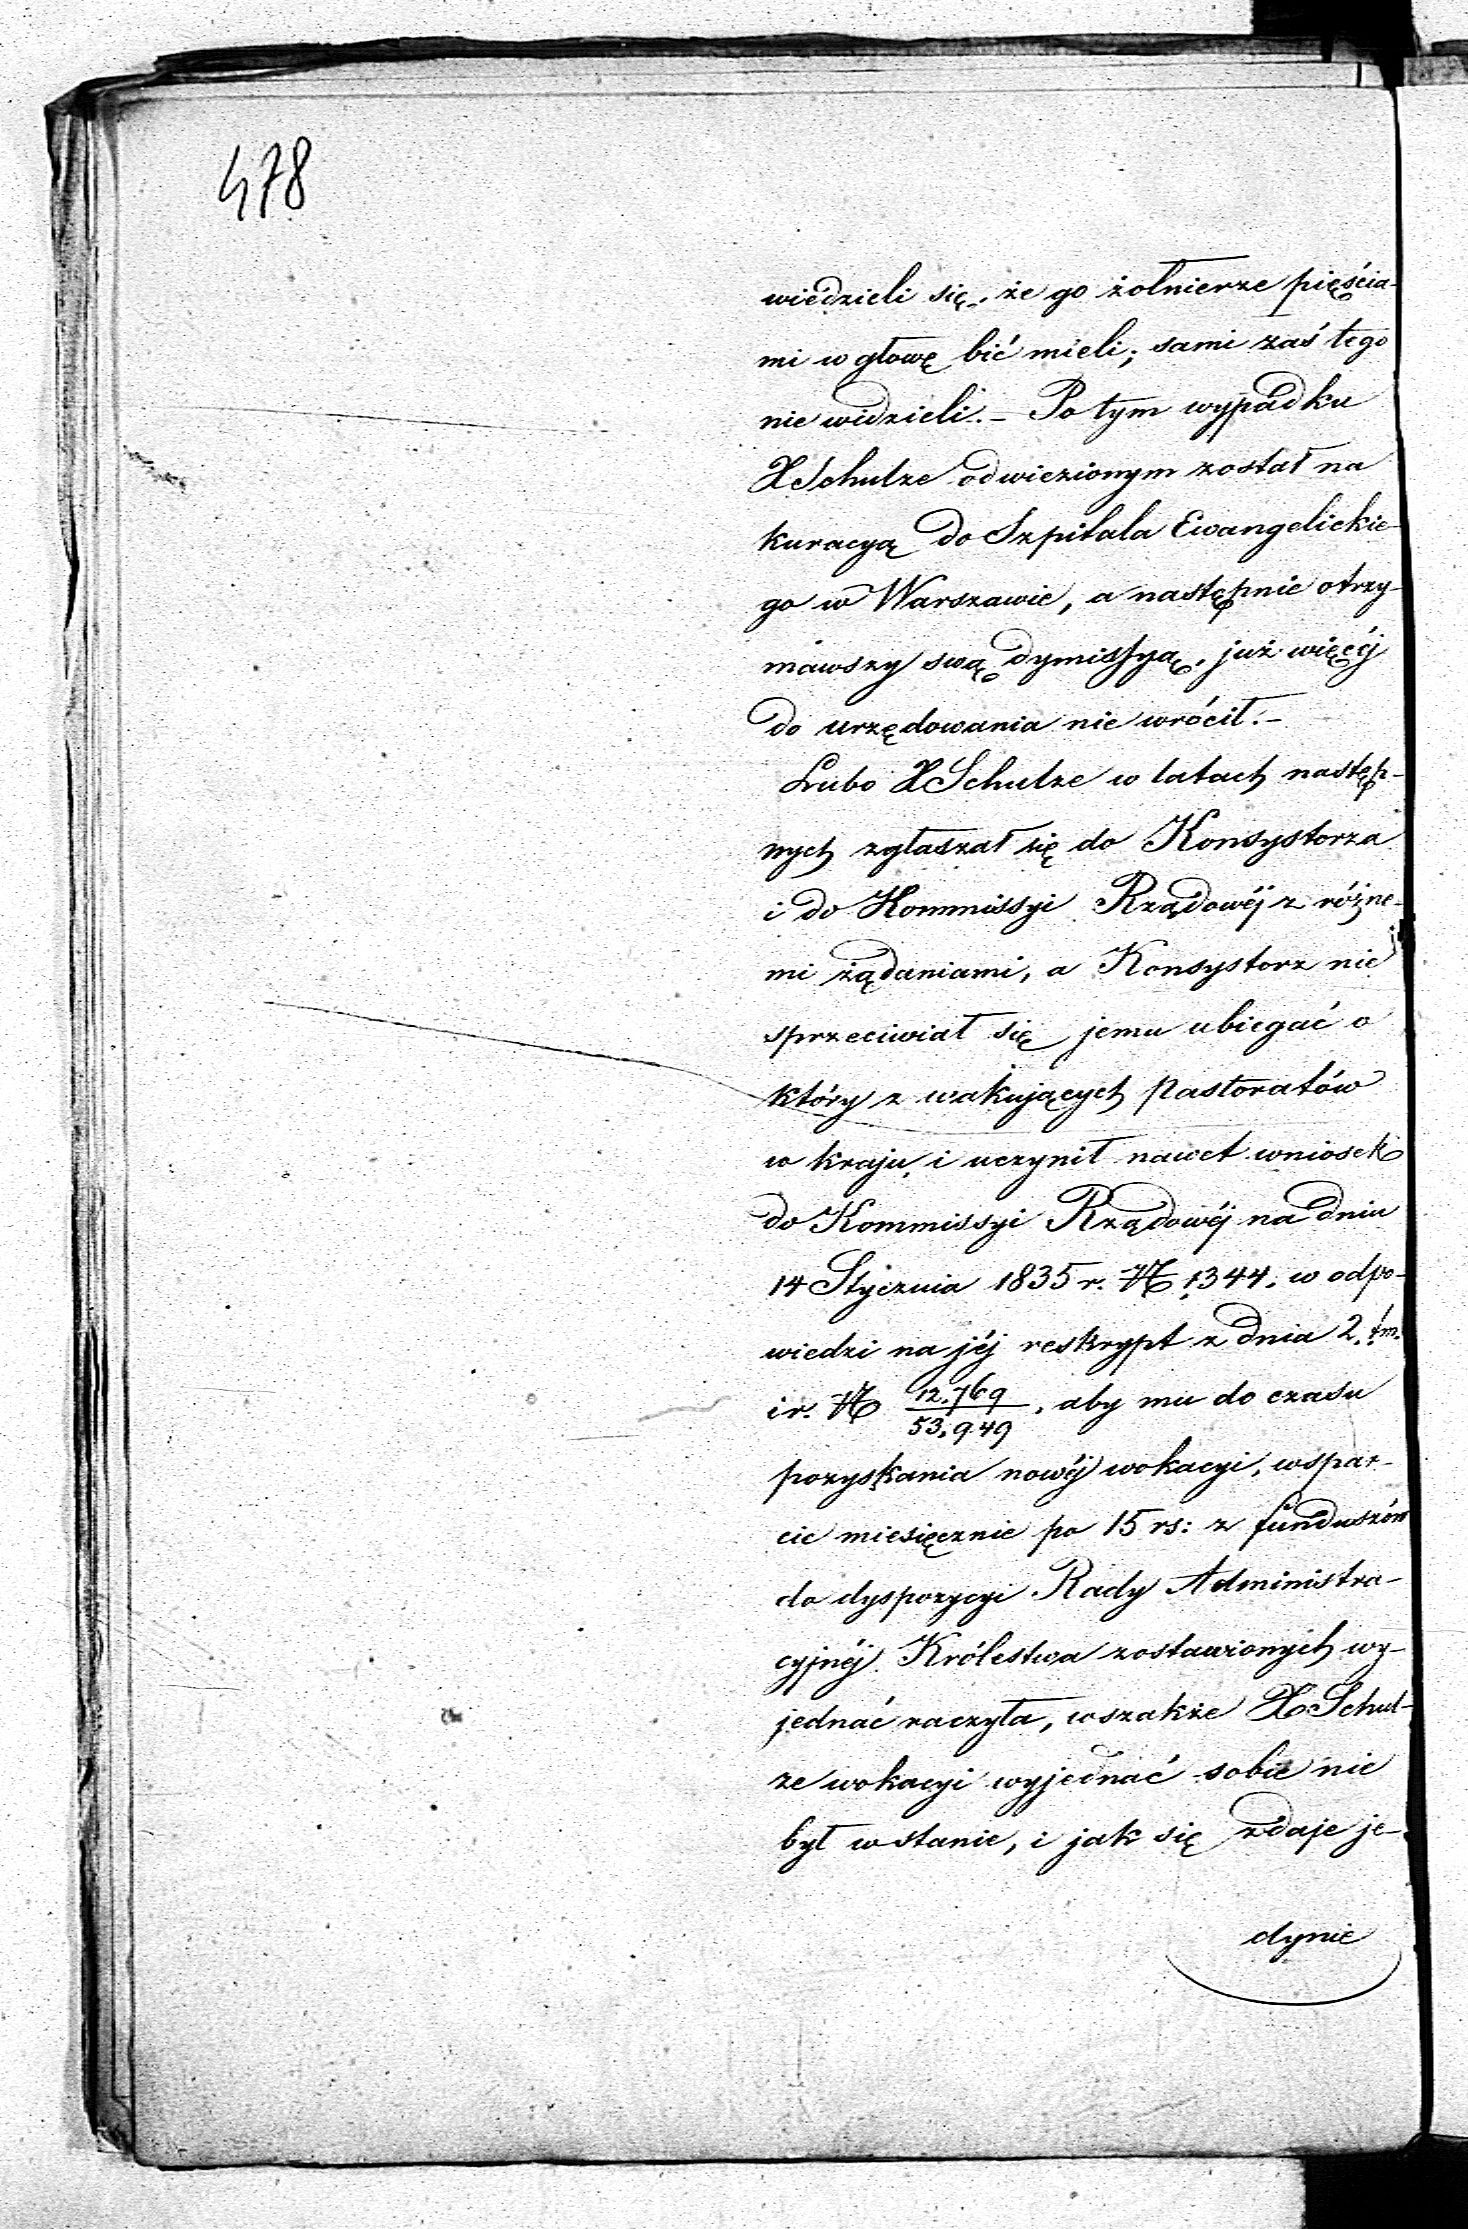 478
wiedzieli się, że go żołnierze pięścia-
mi w głowę bić mieli; sami zaś tego
nie widzieli.– Po tym wypadku
X Schulze odwiezionym został na
kuracyą do Szpitala Ewangelickie-
go w Warszawie, a następnie otrzy-
mawszy swą dymissyą, już więcéj
do urzędowania nie wrócił.–
Lubo X Schulze w latach następ-
nych zgłaszał się do Konsystorza
i do Kommissyi Rządowéj z różne-
mi żądaniami, a Konsystorz nie
sprzeciwiał się jemu ubiegać o
który z wakujących Pastoratów
w kraju, i uczynił nawet wniosek
do Kommissyi Rządowéj na dniu
14 Stycznia 1835 r. № 1344. w odpo-
wiedzi na jéj reskrypt z dnia 2. t.m.
i r. № 12.769/53.949, aby mu do czasu
pozyskania nowéj wokacyi, wspar-
cie miesięcznie po 15 rs: z funduszów
do dyspozycyi Rady Administra-
cyjnéj Królestwa zostawionych wy-
jednać raczyła, wszakże X Schul-
ze wokacyi wyjednać sobie nie
był w stanie, i jak się zdaje je-
dynie